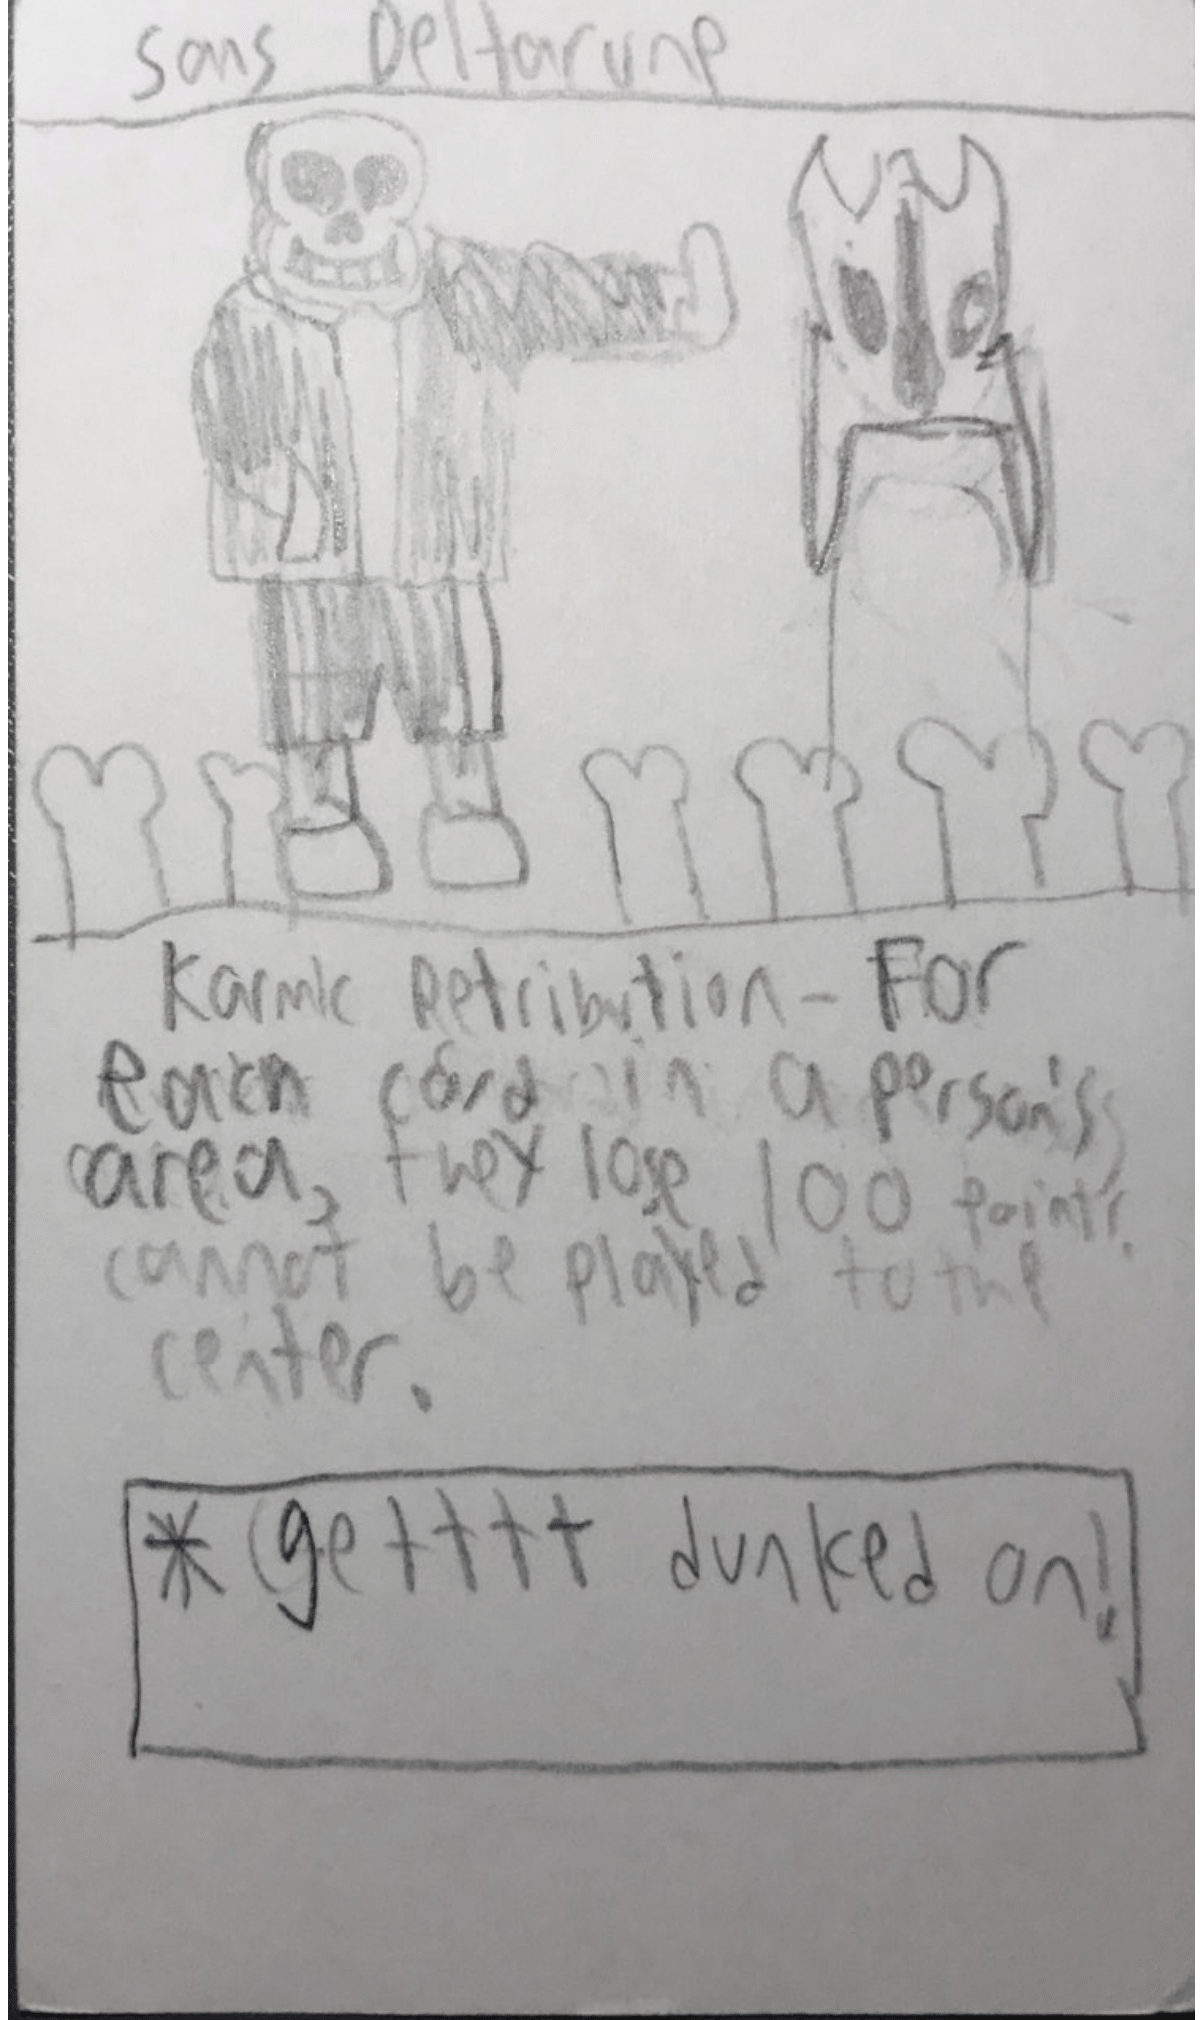 Sans Deltarune
Karmic Retribution - For
each card in a person's
area, they lose 100 points.
cannot be played to the
center.
* getttt dunked on!